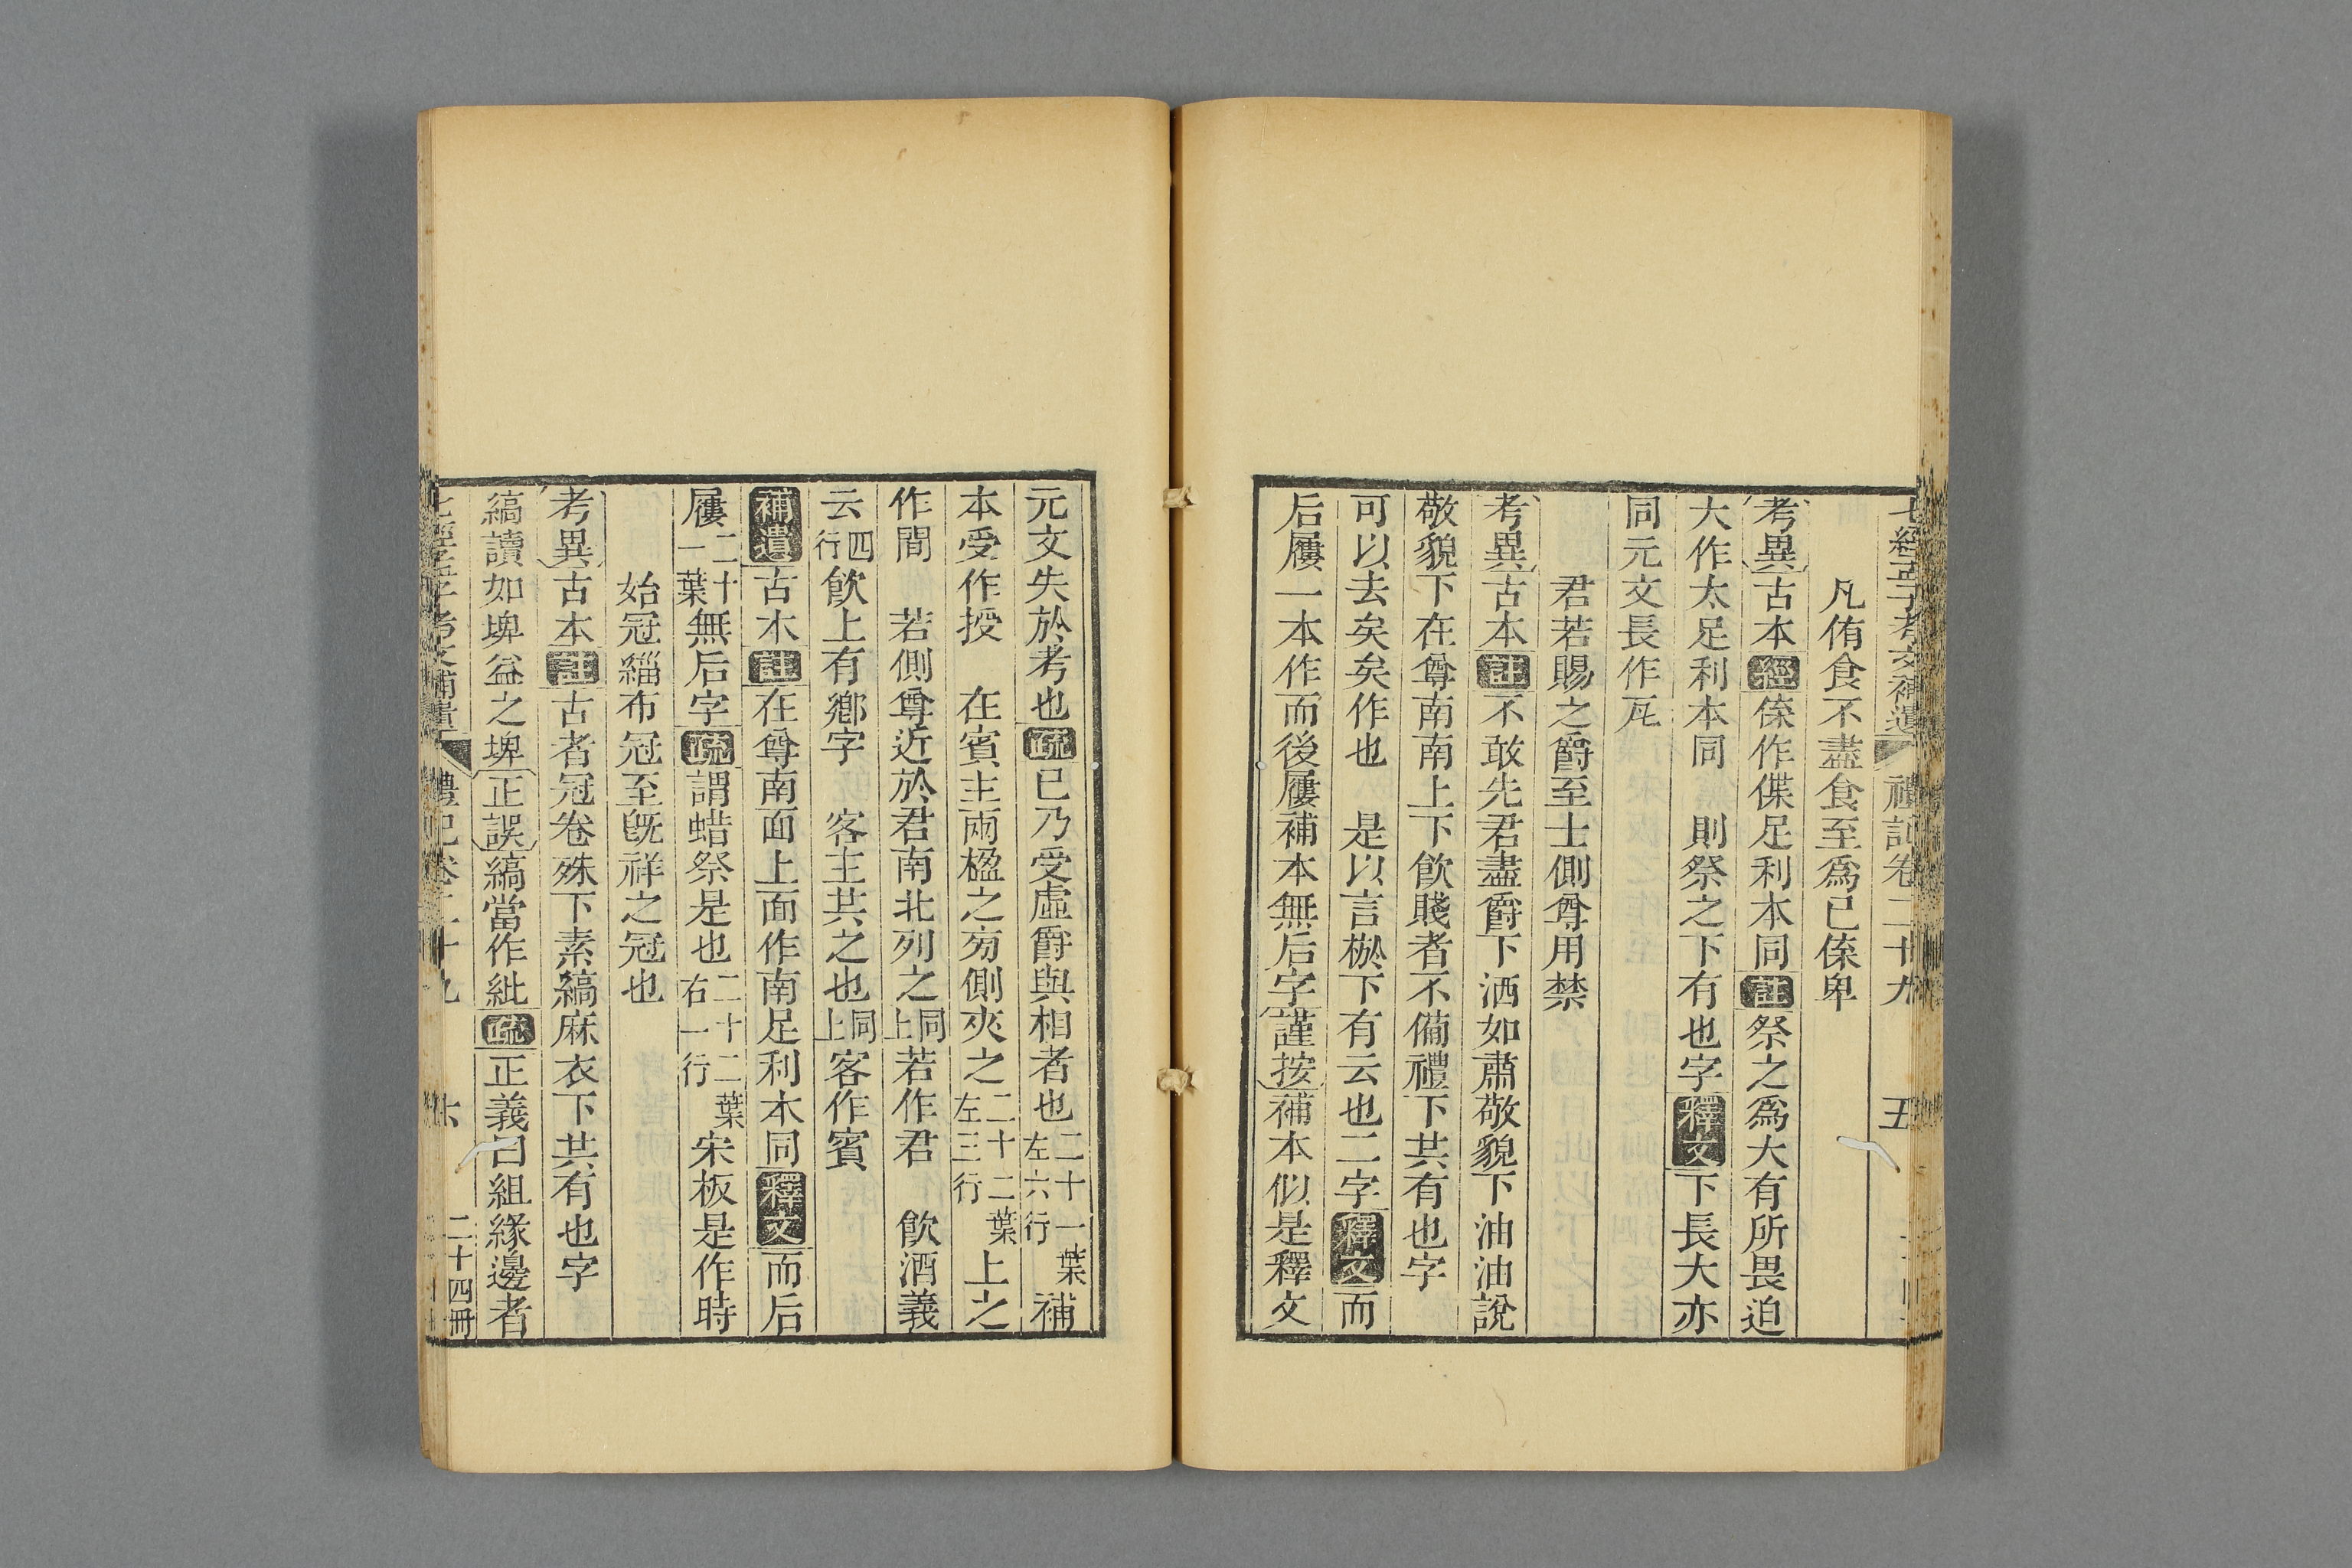 七經孟子考文補遺 禮記卷二十九 五
凡侑食不盡食至爲已傣卑
考異古本經傣作僷足利本同註祭之爲大有所畏迫
大作太足利本同 則祭之下有也字釋文下長大亦
同元文長作㞎
君若賜之爵至士側尊用禁
考異古本註不敢先君盡爵下洒如肅敬貌下油油說
敬貌下在尊南南上下飲賤者不備禮下共有也字
可以去矣矣作也 是以言棜下有云也二字釋文而
后屨一本作而後屨補本無后字謹按補本似是釋文
元文失於考也疏已乃受虛爵與相者也二十一葉左六行補
本受作授 在賓主兩楹之旁側夾之二十二葉左三行上之
作間 若側尊近於君南北列之同上若作君 飲酒義
云四行飲上有鄉字 客主共之也同上客作賓
補遺古本註在尊南面上面作南足利本同釋文而后
屨二十一葉無后字疏謂蜡祭是也二十二葉右一行宋板是作時
始冠緇布冠至旣祥之冠也
考異古本註古者冠卷殊下素縞麻衣下共有也字
縞讀如埤益之埤正誤縞當作紕疏正義曰組緣邊者
七經孟子考文補遺 禮記卷二十九 六 二十四冊